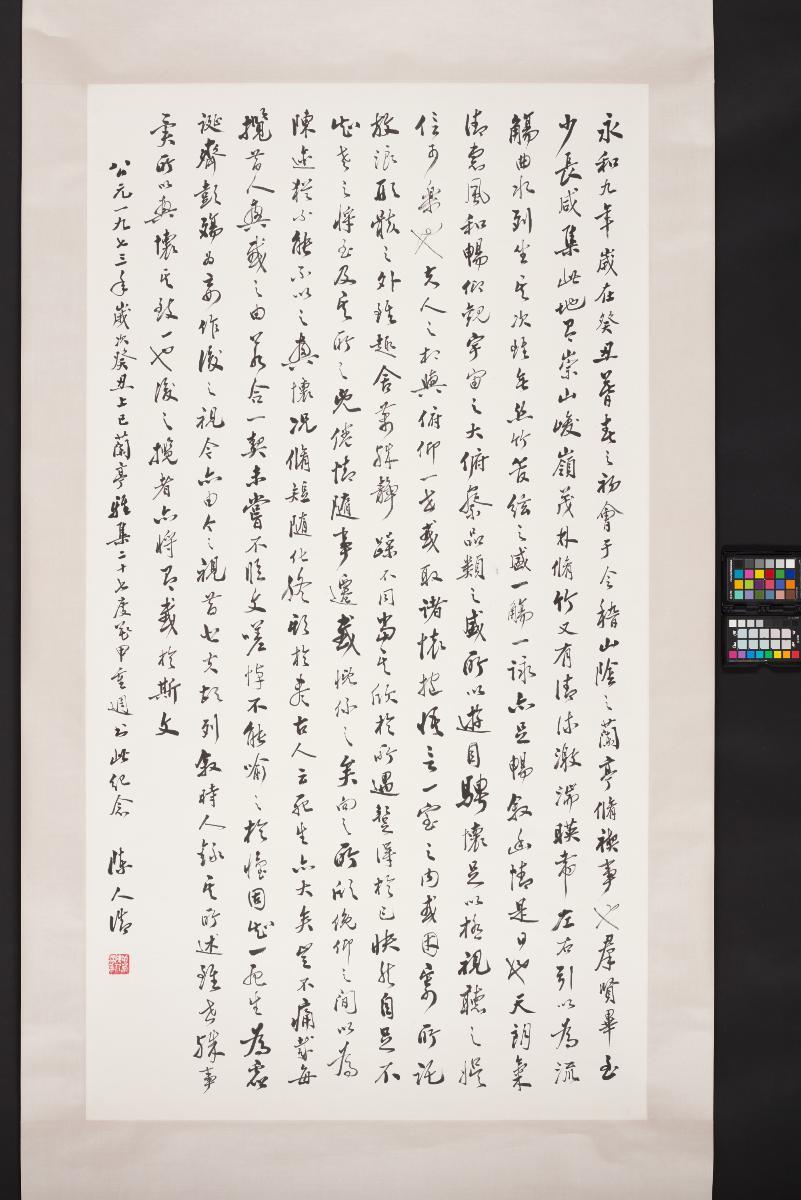 永和九年歲在癸丑暮春之初會于會稽山陰之蘭亭脩禊事也羣賢畢至
少長咸集此地有崇山峻嶺茂林脩竹又有清流激湍暎帶左右引以為流
觴曲水列坐其次雖無絲竹管絃之盛一觴一詠亦足暢敘幽情是日也天朗氣
清惠風和暢仰觀宇宙之大俯察品類之盛所以遊目騁懷足以極視聽之娛
信可樂也夫人之相與俯仰一世或取諸懷抱悟言一室之内或因寄所託
放浪形骸之外雖趣舍萬殊靜躁不同當其欣於所遇蹔得於己快然自足不
知老之將至及其所之既倦情隨事遷感慨係之矣向之所欣俛仰之間以為
陳迹猶不能不以之興懷況脩短隨化終期於盡古人云死生亦大矣豈不痛哉每
攬昔人興感之由若合一契未嘗不臨文嗟悼不能喻之於懷固知一死生為虛
誕齊彭殤為妄作後之視今亦由今之視昔悲夫故列敘時人錄其所述雖世殊事
異所以興懷其致一也後之攬者亦將有感於斯文
公元一九七三年歲次癸丑上巳蘭亭雅集二十七度花甲重週書此紀念 陳人浩